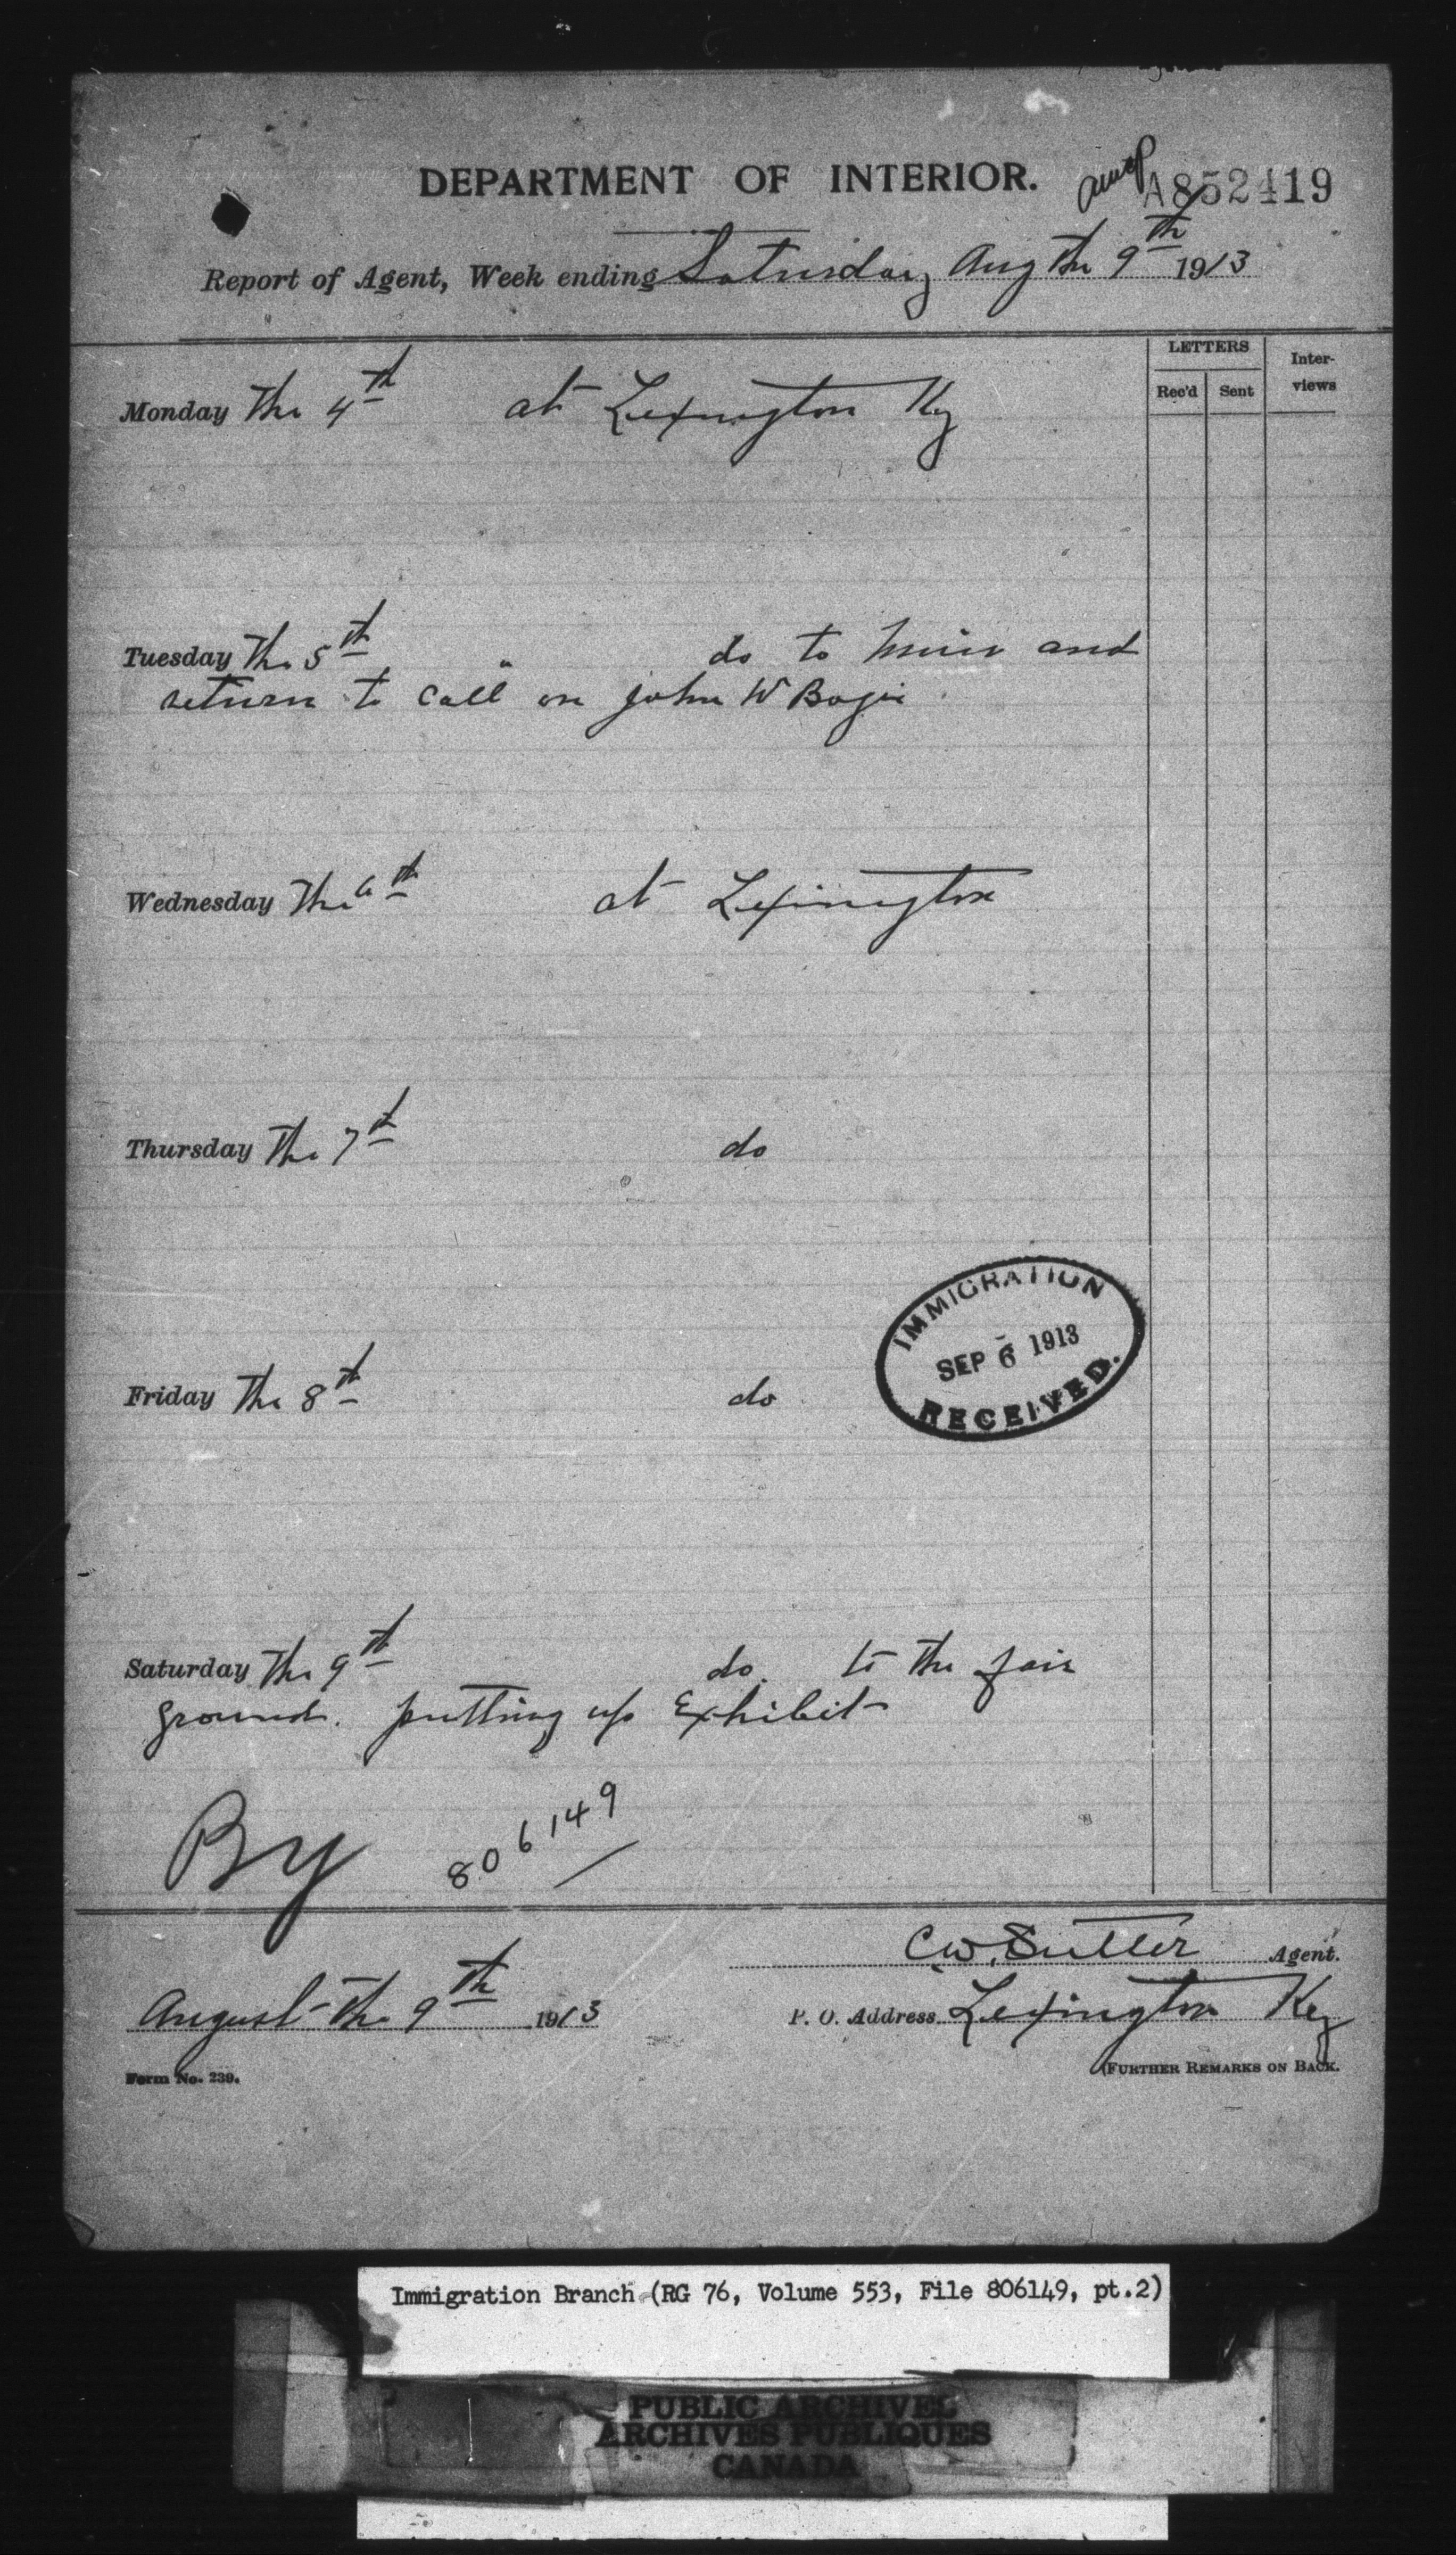 DEPARTMENT OF INTERIOR.
A852419
Report of Agent, Week ending Saturday Aug the 9th 1913
LETTERS
Rec'd Sent
Inter-
views
Monday The 4th at Lexington Ky
Tuesday The 5th " do to Muir and
return to Call on John W Bogie
Wednesday The 6th at Lexington
Thursday The 7th do
IMMIGRATION
SEP 6 1913
RECEIVED.
Friday The 8th do
Saturday The 9th do. to the fair
ground. putting up Exhibit
By 806149
C.W. Sutter Agent.
August The 9th 1913
P. O. Address Lexington Ky
Form No. 239.
(FURTHER REMARKS ON BACK.
Immigration Branch (RG 76, Volume 553, File 806149, pt.2)
PUBLIC ARCHIVES
ARCHIVES PUBLIQUES
CANADA